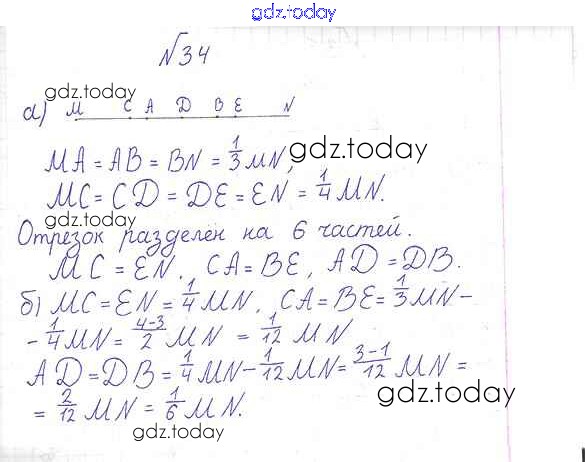 gdz.today
№34
gdz.today
а) M C A D B E N
MA = AB = BN = 1/3 MN, gdz.today
MC = CD = DE = EN = 1/4 MN.
gdz.today
Отрезок разделен на 6 частей.
MC = EN, CA = BE, AD = DB.
б) MC = EN = 1/4 MN, CA = BE = 1/3 MN -
- 1/4 MN = 4-3/2 MN = 1/12 MN
AD = DB = 1/4 MN - 1/12 MN = 3-1/12 MN =
= 2/12 MN = 1/6 MN.
gdz.today
gdz.today